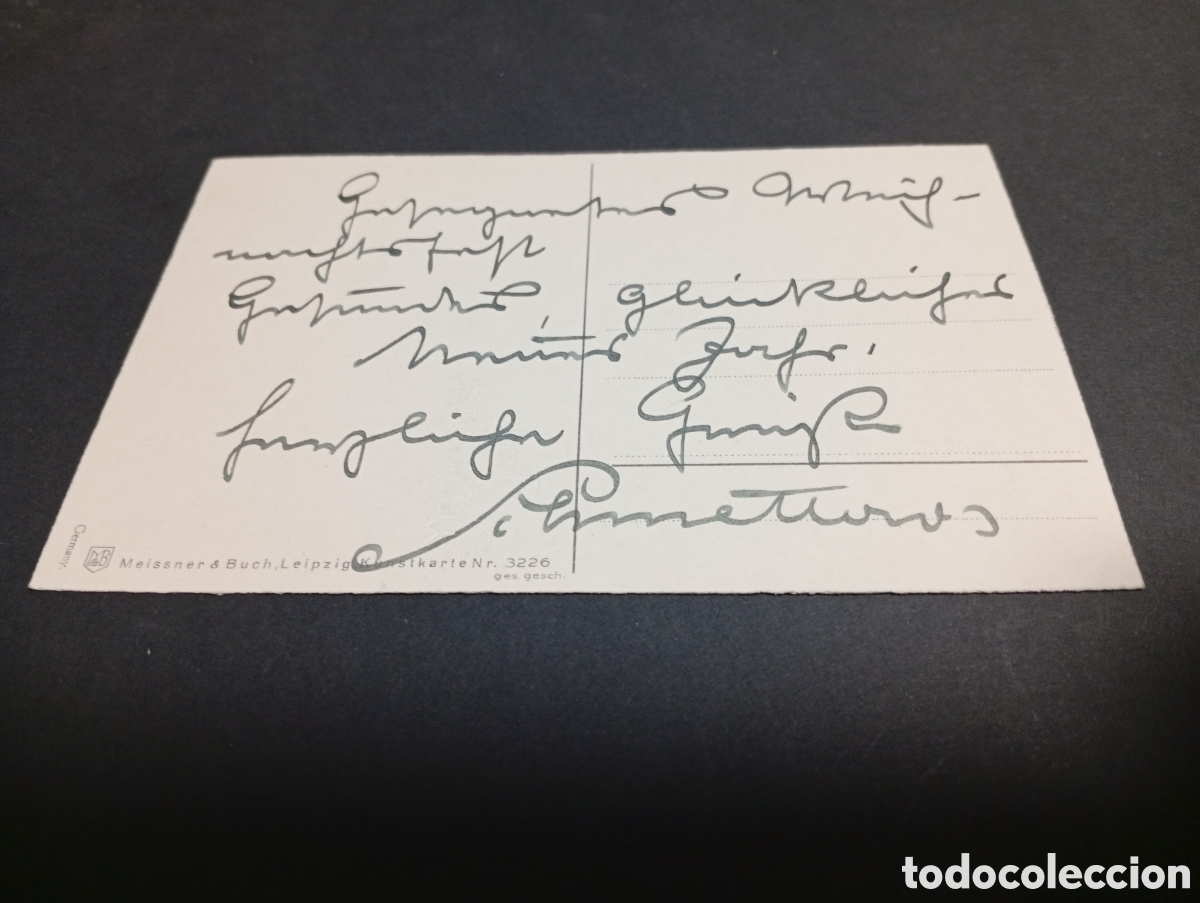 Gesegnetes Weih-
nachtsfest
Gesundes, glückliches
Neues Jahr.
Herzliche Grüße
Germany.
M&B
Meissner & Buch, Leipzig Kunstkarte Nr. 3226
ges. gesch.
todocoleccion